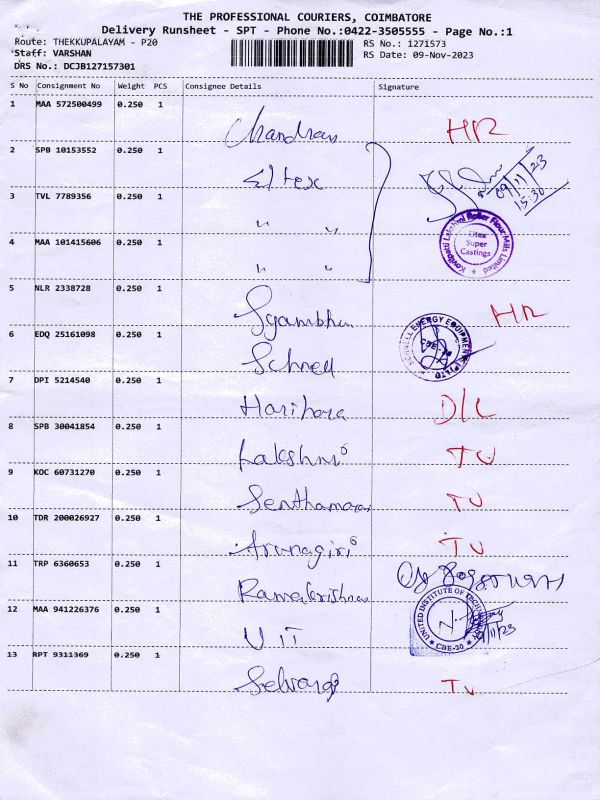 THE PROFESSIONAL COURIERS, COIMBATORE
Delivery Runsheet - SPT - Phone No.:0422-3505555 - Page No.:1
Route: THEKKUPALAYAM - P20 RS No.: 1271573
Staff: VARSHAN RS Date: 09-Nov-2023
DRS No.: DCJB127157301
S No Consignment No Weight PCS Consignee Details Signature
1 MAA 572500499 0.250 1 Chandran HR
2 SPB 10153552 0.250 1 Eltex
09/11/23
15:30
3 TVL 7789356 0.250 1 " "
Kovilpatti Lakshmi Roller Flour Mills Limited
Eltex
Super
Castings
4 MAA 101415606 0.250 1 " "
5 NLR 2338728 0.250 1 Syambhu HR
6 EDQ 25161098 0.250 1 Schnell
SCHNELL ENERGY EQUIPMENTS (P) LTD
CBE-20
7 DPI 5214540 0.250 1 Harihara D/L
8 SPB 30041854 0.250 1 Lakshmi TV
9 KOC 60731270 0.250 1 Senthamarai TV
10 TDR 200026927 0.250 1 Arunagiri TV
11 TRP 6360653 0.250 1 Ramakrishnan
12 MAA 941226376 0.250 1 UIT
UNITED INSTITUTE OF TECHNOLOGY
CBE-20
13 RPT 9311369 0.250 1 Selvaraj TV